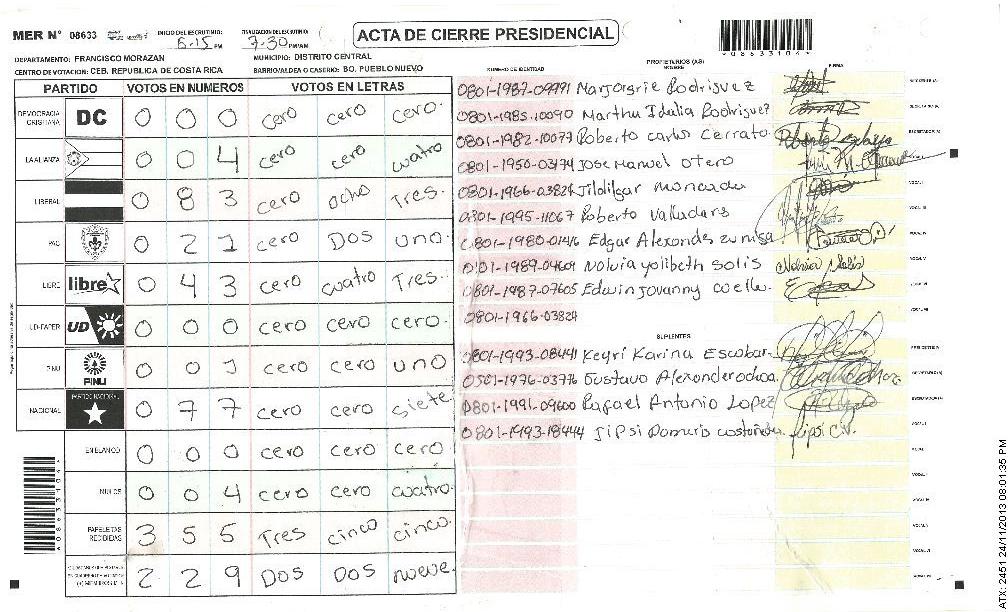 MER N° 08633 INICIO DEL ESCRUTINIO: 6-15 PM FINALIZACION DEL ESCRUTINIO: 7-30 PM/AM
ACTA DE CIERRE PRESIDENCIAL
DEPARTAMENTO: FRANCISCO MORAZAN MUNICIPIO: DISTRITO CENTRAL
CENTRO DE VOTACION: CEB. REPUBLICA DE COSTA RICA BARRIO/ALDEA O CASERIO: BO. PUEBLO NUEVO
PARTIDO VOTOS EN NUMEROS VOTOS EN LETRAS
DEMOCRACIA CRISTIANA DC 0 0 0 cero cero cero.
LA ALIANZA 0 0 4 cero cero cuatro
LIBERAL 0 8 3 cero ocho Tres.
PAC 0 2 1 cero Dos uno.
LIBRE libre 0 4 3 cero cuatro Tres.
UD-FAPER UD 0 0 0 cero cero cero.
PINU PINU 0 0 1 cero cero uno
NACIONAL PARTIDO NACIONAL 0 7 7 cero cero siete
EN BLANCO 0 0 0 cero cero cero
NULOS 0 0 4 cero cero cuatro.
PAPELETAS RECIBIDAS 3 5 5 Tres cinco cinco.
2 2 9 Dos Dos nueve.
NUMERO DE IDENTIDAD PROPIETARIOS (AS) NOMBRE FIRMA
0801-1987-09971 Marjorie Rodriguez
0801-1985-10090 Martha Idalia Rodriguez
0801-1982-10077 Roberto carlos Cerrato
0801-1950-03174 Jose Manuel otero
0801-1966-03824 Jildilgar Moncada
0801-1995-11067 Roberto Valladares
0801-1980-01416 Edgar Alexander zuniga
0101-1989-04604 Nolvia yolibeth solis
0801-1987-07605 Edwin Jovanny coello
0801-1966-03824
SUPLENTES
0801-1993-08441 Keyri Karina Escobar
0501-1976-03776 Gustavo Alexander ochoa
0801-1991-09600 Rafael Antonio Lopez
0801-1993-18444 Jipsi Damaris castañeda
ATX: 2451 24/11/2013 08:01:35 PM